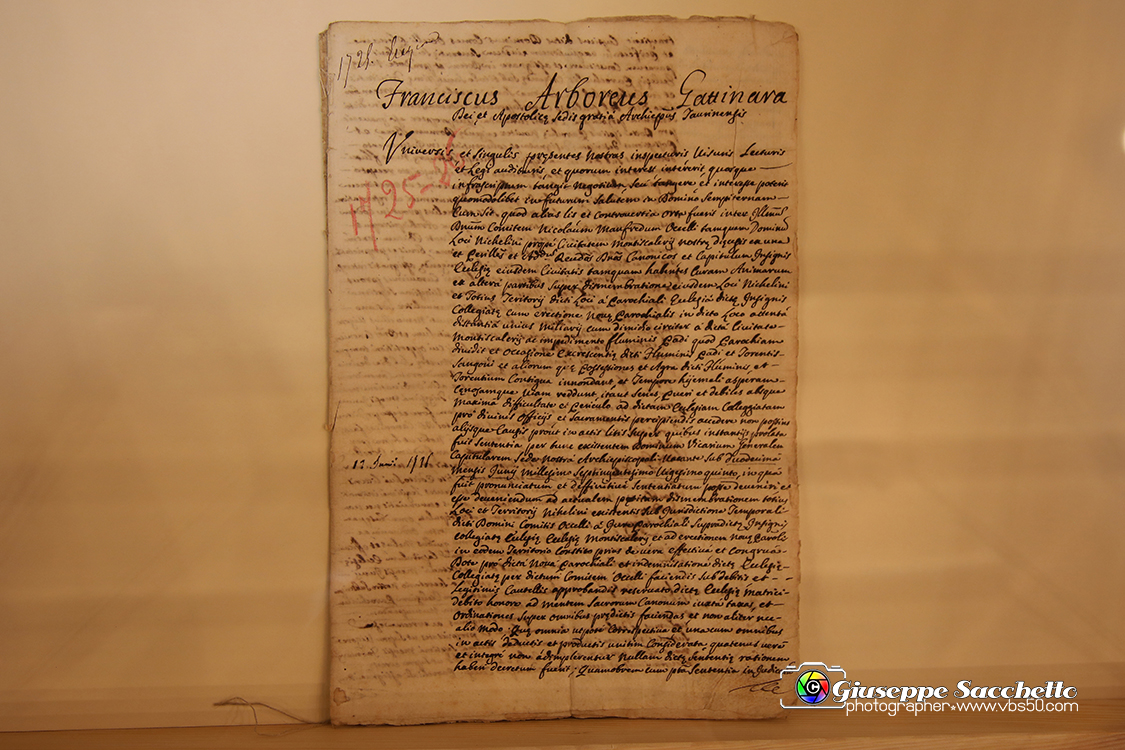 1725.
Franciscus Arboreus Gattinara
Dei et Apostolicę Sedis gratia Archiepus Taurinensis
1725
Vniversis et singulis pręsentes Nostras inspecturis Visuris Lecturis
et Legi audituris, et quorum interest intererit quosque
infrascriptum tangit Negotium, seu tangere et interesse poterit
quomodolibet in futurum Salutem in Domino Sempiternam
Cum sit quod alias lis et controversia orta fuerit inter Illmũ
Dnum Comitem Nicolaum Manfredum Ocelli tamquam Dominũ
Loci Nichelini prope Civitatem Montiscalerij nostrę Dięcesis ex una
et Canonicos et Capitulum Insignis
Eclesię eiusdem Civitatis tamquam habentes Curam Animarum
et altera partibus super dismembratione eiusdem Loci Nichelini
et Totius Teritorij dicti Loci a Parochiali Eclesia dictę Insignis
Collegiatę cum erectione Novę Parochialis in dicto Loco attenta
distantia unius Miliarij cum dimidio circiter a dicta Civitate
Montiscalerij ac impedimento fluminis Padi quod Parochiam
dividit et Occasione Excrescentię dicti Fluminis Padi et Torentis
Sangoni et aliorum quę Possessiones et Agra dicti Fluminis, et
Torentium Contigua innondant, et Tempore hijemali asperam
Cenosamque Viam reddunt, ita ut Senes, Pueri et debiles absque
maxima difficultate et Periculo ad dictam Eclesiam Collegiatam
pro divinis Officijs et Sacramentis percipiendis accedere non possint
alijsque Causis prout in actis litis super quibus instantijs prolata
fuit Sententia per tunc existentem Dominum Vicarium Generalem
Capitularem Sede Nostra Archiepiscopali Vacante sub duodecima
mensis Junij Millesimo Septingentesimo Vigesimo quinto, in qua
fuit pronunciatum et deffinitive sententiatum posse deveniri et
esse deveniendum ad actualem petitam dismembrationem totius
Loci et Territorij Nihelini existentis sub Jurisdictione Temporali
dicti Domini Comitis Ocelli a Jure Parochiali Supradictę Insignis
Collegiatę Eclesię Montiscalerij et ad erectionem Novę Paroli
in eodem Territorio Constito prius de vera effectiva et congrua
Dote pro dicta Nova Parochiali et indemnisatione dictę Eclesię
Collegiatę per dictum Comitem Ocelli faciendis sub debitis et
Legitimis Cautellis approbandis reservato dictę Eclesię Matrici
debito honore ad mentem Sacrorum Canonum iuxta taxas, et
Ordinationes super omnibus prędictis faciendas et non aliter nec
alio Modo. Quę omnia utpote Correspectiva et una cum omnibus
in actis deductis et productis unitim Considerata quatenus vere
et integre non adimplerentur Nullam dictę Sententię rationem
haberi decretum fuerit; Quamobrem cum pta Sententia in Judica
Giuseppe Sacchetto
photographer•www.vbs50.com